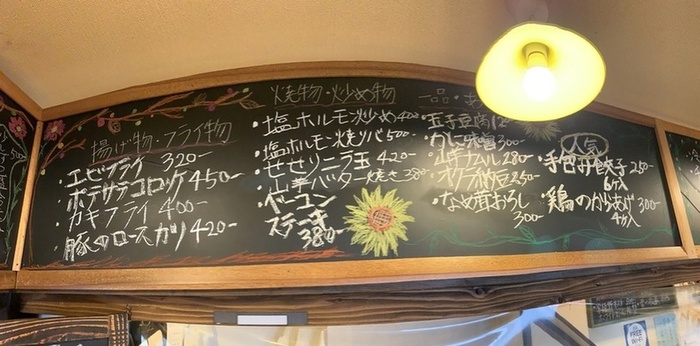 揚げ物・フライ物
・エビフライ 320-
・ポテサラコロッケ 450-
・カキフライ 400-
・豚のロースカツ 420-
焼物・炒め物
・塩ホルモン炒め 400-
・塩ホルモン焼うどん 500-
・せせりニラ玉 420-
・山芋バター焼き 380-
・ベーコン
ステーキ
380-
一品・
・玉子豆腐
・かに味噌 300-
・山芋ナムル 280-
・オクラ納豆 250-
・なめ茸おろし
300-
人気
・手包み餃子 250-
6ケ入
・鶏のからあげ 300-
4ケ入